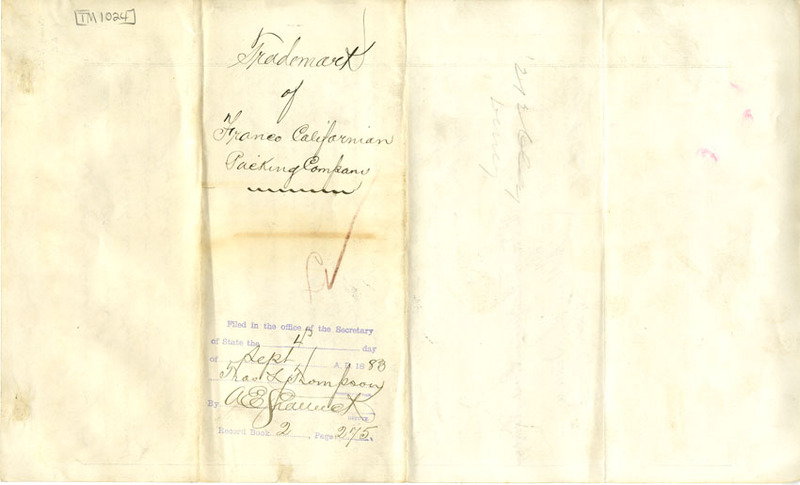 TM1024
Trademark
of
Franco Californian
Packing Company
Filed in the office of the Secretary
of State the 4th day
of Sept A. D. 1883
Thos L Thompson
By A E
Record Book 2, Page 275.